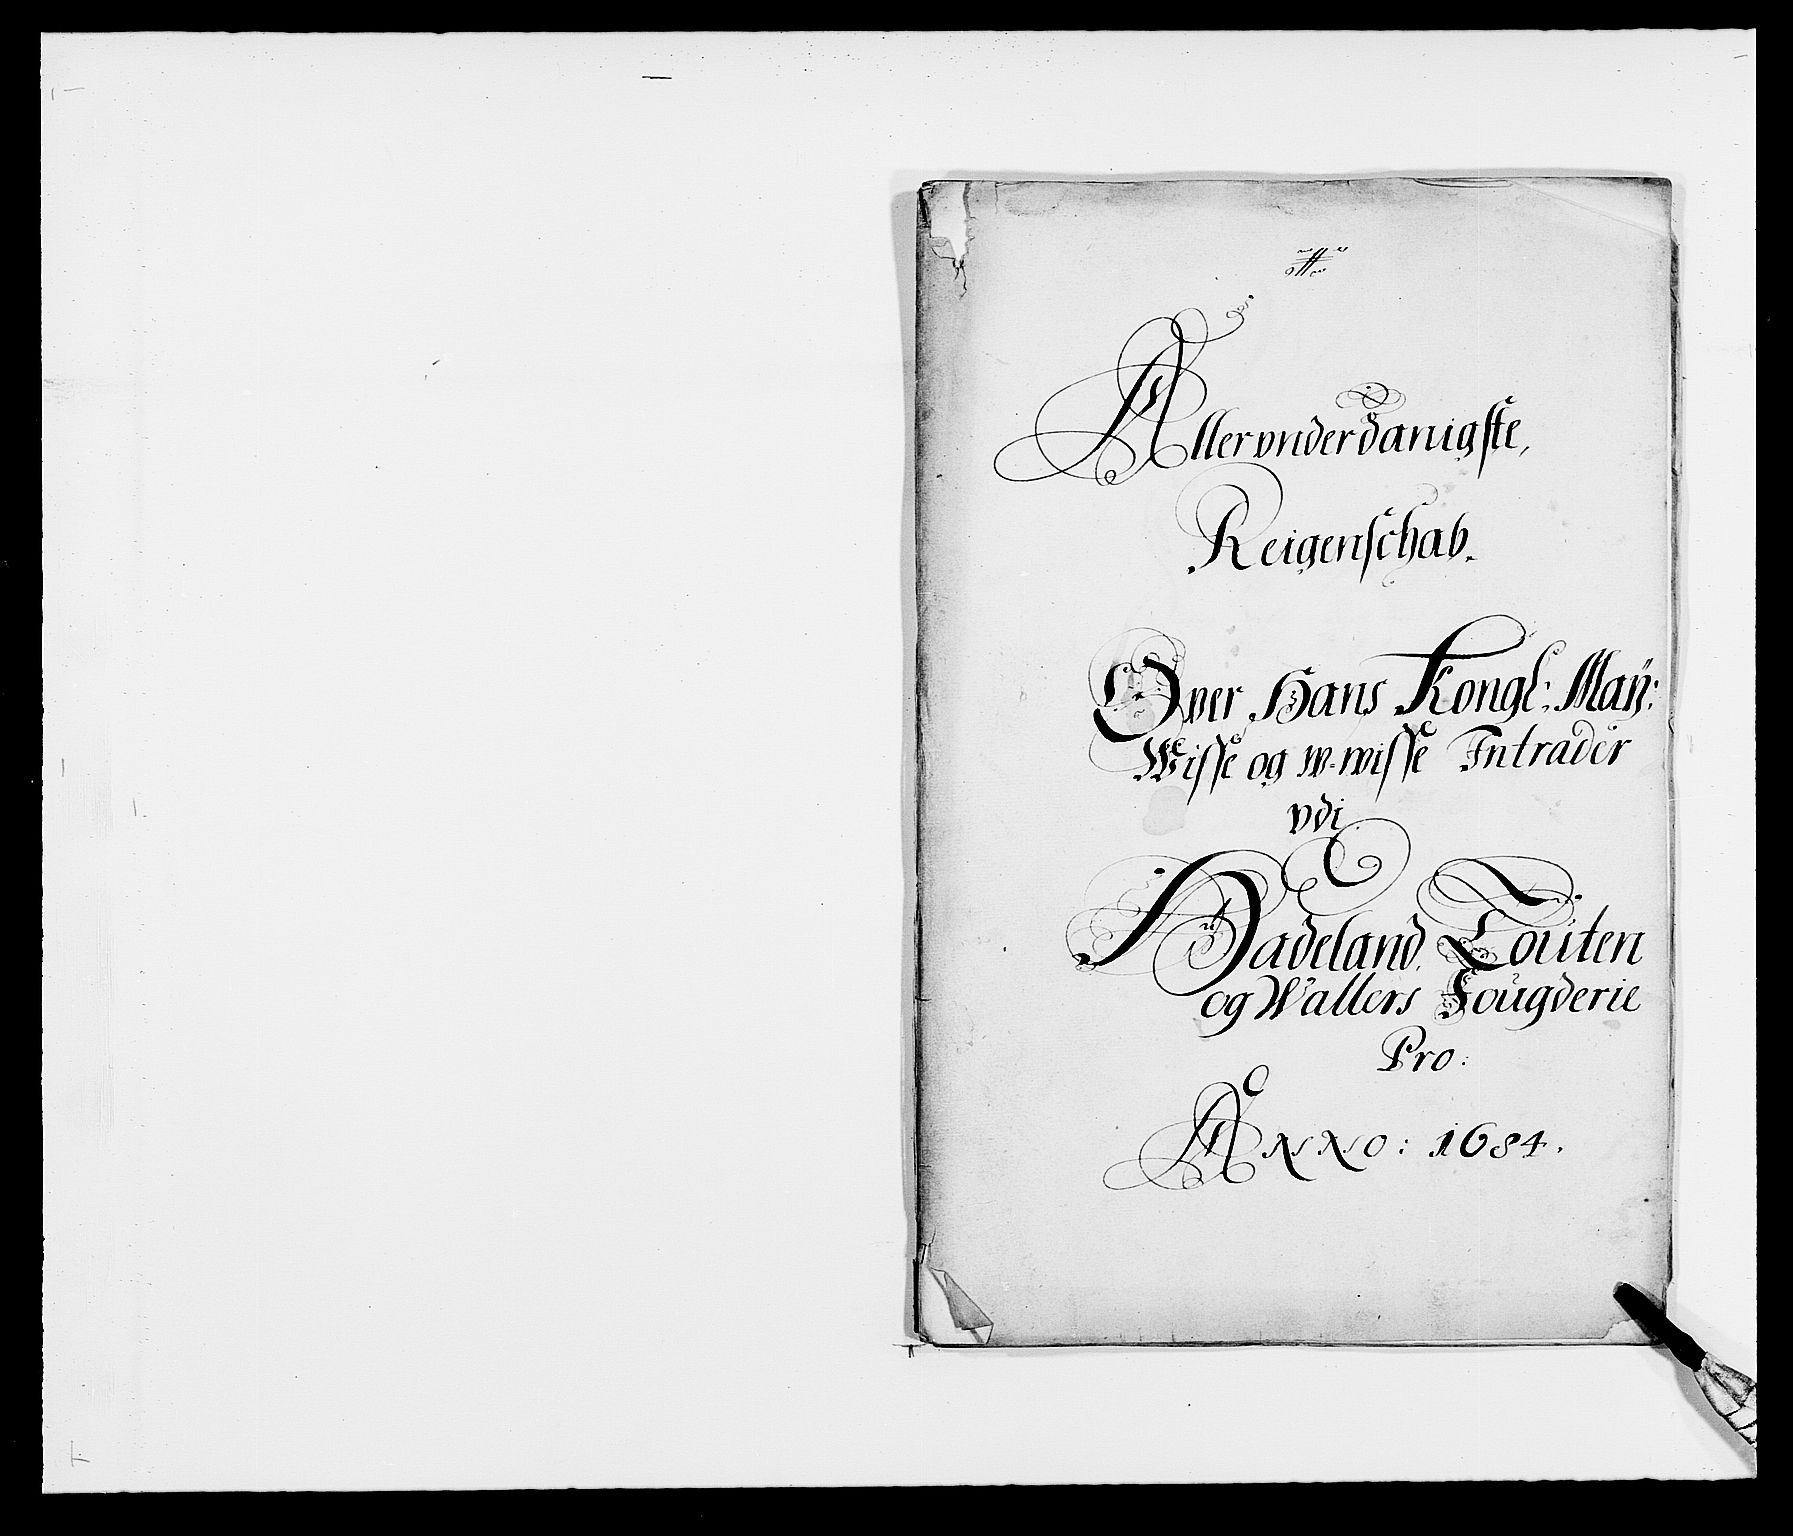 Allervnderdanigste,
Reigenschab.
Over Hans Kongl: Maÿ:
Wisse og w-wisse Intrader
vdi
Hadeland, Touten
og Wallers Fougderie
Pro:
ANNO: 1684.